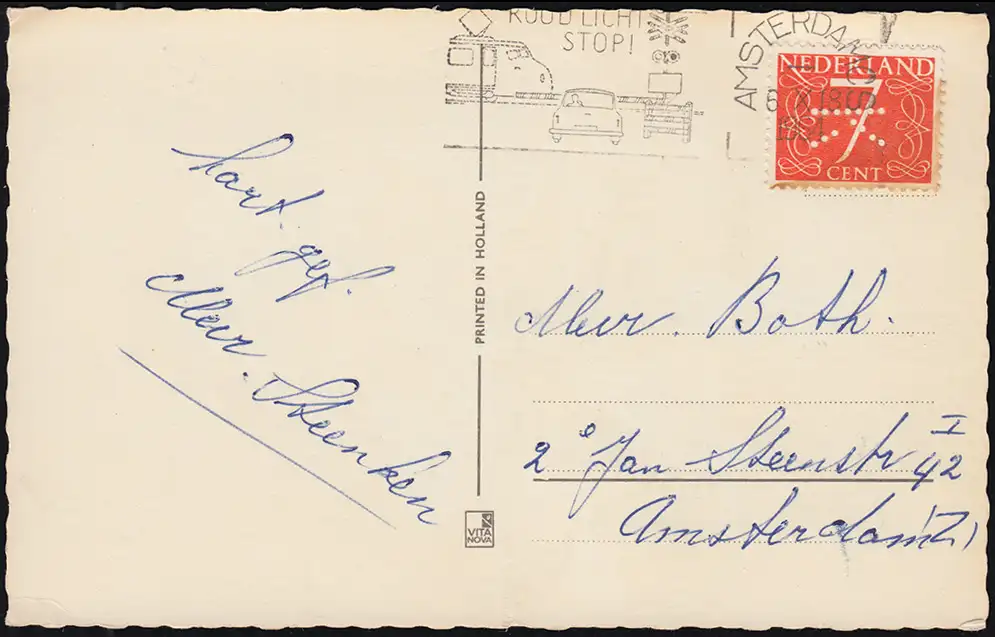 ROOD LICHT
STOP!
AMSTERDAM
NEDERLAND
7
CENT
hart. gef.
Mevr. Steenken
PRINTED IN HOLLAND
VITA
NOVA
Mevr. Both.
2e Jan Steenstr 42 I
Amsterdam (Z)